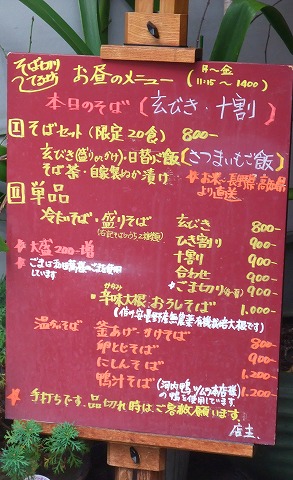 そば切り
お昼のメニュー (月〜金 11:15〜1400)
本日のそば〔玄びき・十割〕
Ⅰ そばセット(限定20食) 800-
玄びき(盛りorかけ)・日替わりご飯(さつまいもご飯)
そば茶・自家製ぬか漬け
★お茶・長野県
より直送
Ⅱ 単品
冷たいそば・盛りそば
玄びき 800-
ひき割り 900-
十割 900-
合わせ 900-
ごま切り 900-
★大盛200-増
★ごまは
しています
辛味大根おろしそば 1,000-
温かいそば 釜あげ・かけそば 800-
卵とじそば 900-
にしんそば 1,200-
鴨汁そば 1,200-
(河内鴨ツムラ本店様の鴨を使用しています)
★手打ちです。品切れ時はご容赦願います。
店主、